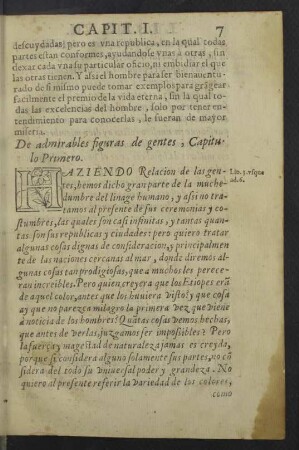 CAPIT. I. 7
descuydadas; pero es vna republica, en la qual todas
partes estan conformes, ayudandose vnas à otras, sin
dexar cada vna su particular oficio, ni embidiar el que
las otras tienen. Y assi el hombre para ser bienauentu-
rado de si mismo puede tomar exemplos para grãgear
facilmente el premio de la vida eterna, sin la qual to-
das las excelencias del hombre, solo por tener en-
tendimiento para conocerlas, le fueran de mayor
miseria.
De admirables figuras de gentes, Capitu-
lo Primero.
HAZIENDO Relacion de las gen-
tes, hemos dicho gran parte de la muche-
dumbre del linage humano, y assi no tra-
tamos al presente de sus ceremonias y co-
stumbres, las quales son casi infinitas, y tantas quan-
tas son sus republicas y ciudades: pero quiero tratar
algunas cosas dignas de consideracion, y principalmen-
te de las naciones cercanas al mar, donde diremos al-
gunas cosas tan prodigiosas, que a muchos les perece-
ran increibles. Pero quien creyera que los Etiopes erã
de aquel color, antes que los huuiera visto? y que cosa
ay que no parezca milagro la primera vez que viene
à noticia de los hombres? Quãtas cosas vemos hechas,
que antes de verlas, juzgamos ser impossibles? Pero
la fuerça y magestad de naturaleza jamas es creyda,
porque si considera alguno solamente sus partes, no cõ
sidera del todo su vniuersal poder y grandeza. No
quiero al presente referir la variedad de los colores,
como
Lib. 3. vsque
ad. 6.